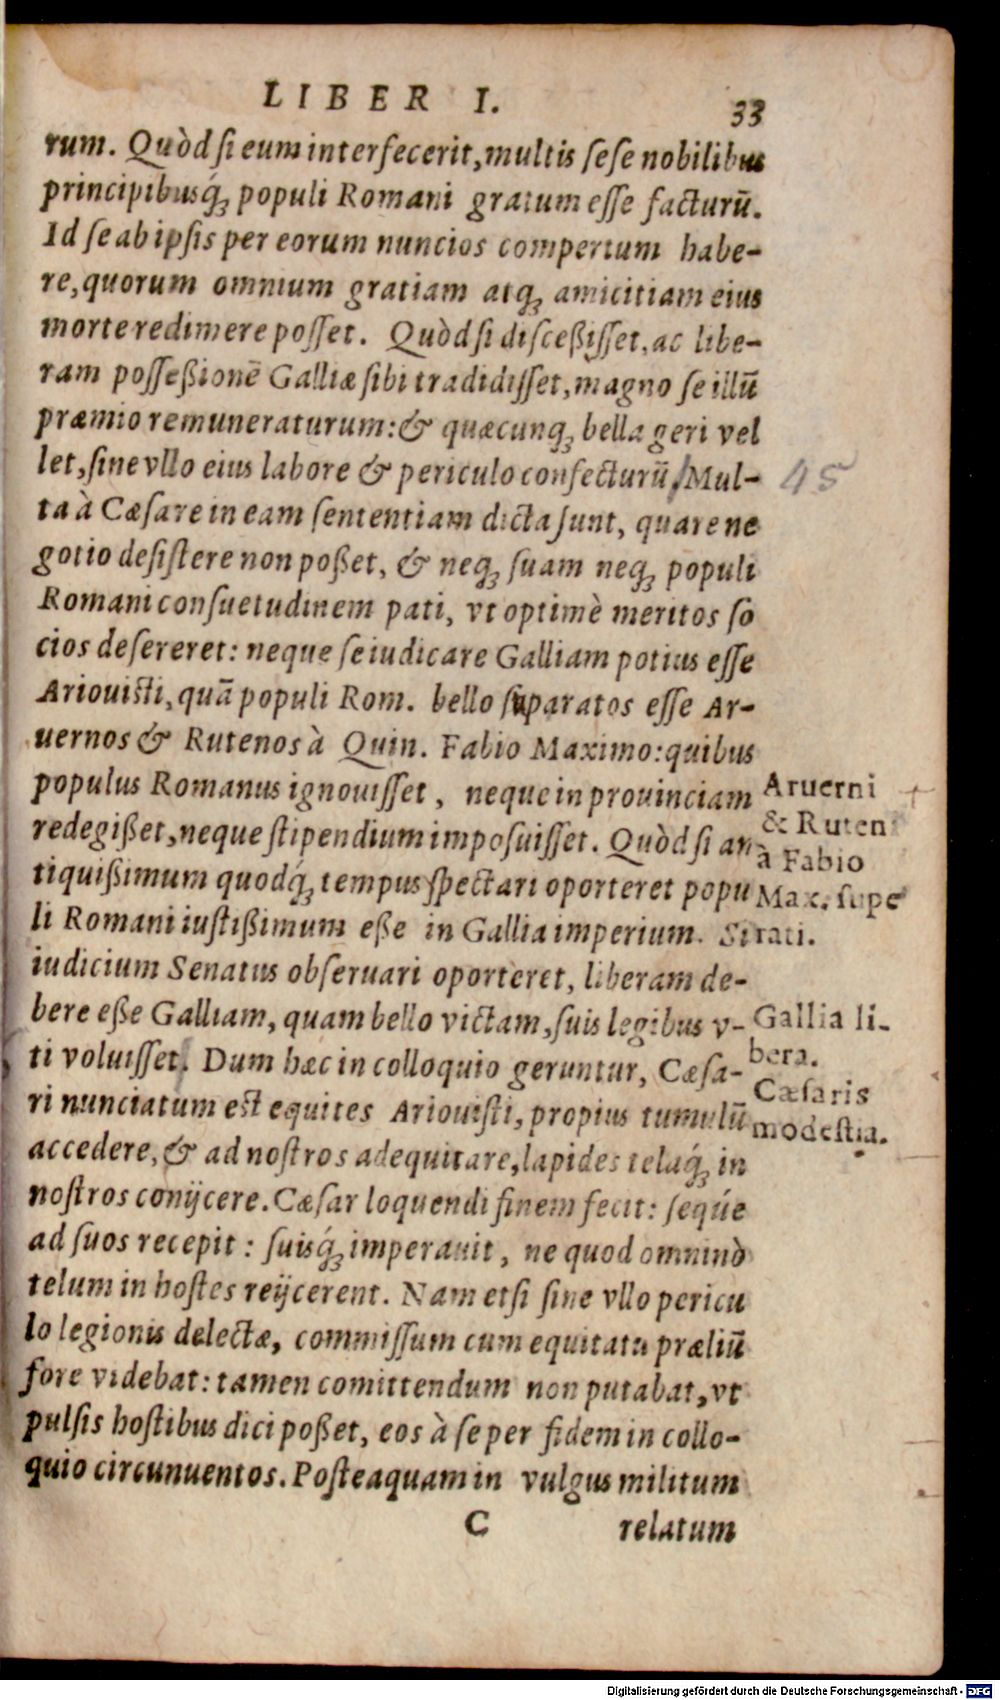 LIBER I. 33
rum. Quòd ſi eum interfecerit, multis ſeſe nobilibus
principibusq́ꝫ populi Romani gratum eſſe facturū.
Id ſe ab ipſis per eorum nuncios compertum habe-
re, quorum omnium gratiam atqꝫ amicitiam eius
morte redimere poſſet. Quòd ſi diſceßiſſet, ac libe-
ram poſſeßionē Galliæ ſibi tradidiſſet, magno ſe illū
præmio remuneraturum: & quæcunqꝫ bella geri vel
let, ſine vllo eius labore & periculo confecturū. Mul-
45
ta à Cæſare in eam ſententiam dicta ſunt, quare ne
gotio deſiſtere non poßet, & neqꝫ ſuam neqꝫ populi
Romani conſuetudinem pati, vt optimè meritos ſo
cios deſereret: neque ſe iudicare Galliam potius eſſe
Ariouiſti, quā populi Rom. bello ſuparatos eſſe Ar-
uernos & Rutenos à Quin. Fabio Maximo: quibus
populus Romanus ignouiſſet, neque in prouinciam
redegißet, neque ſtipendium impoſuiſſet. Quòd ſi an
tiquißimum quodq́ꝫ tempus ſpectari oporteret popu
li Romani iuſtißimum eße in Gallia imperium. Si
iudicium Senatus obſeruari oporteret, liberam de-
bere eße Galliam, quam bello victam, ſuis legibus v-
ti voluiſſet. Dum hæc in colloquio geruntur, Cæſa-
ri nunciatum est equites Ariouiſti, propius tumulū
accedere, & ad noſtros adequitare, lapides telaq́ꝫ in
noſtros conijcere. Cæſar loquendi finem fecit: ſeqúe
ad ſuos recepit: ſuisq́ꝫ imperauit, ne quod omninò
telum in hoſtes reijcerent. Nam etſi ſine vllo pericu
lo legionis delectæ, commiſſum cum equitatu præliū
fore videbat: tamen comittendum non putabat, vt
pulſis hoſtibus dici poßet, eos à ſe per fidem in collo-
quio circunuentos. Poſteaquam in vulgus militum
C relatum
Aruerni
& Ruteni
à Fabio
Max. ſupe
rati.
Gallia li-
bera.
Cæſaris
modeſtia.
Digitalisierung gefördert durch die Deutsche Forschungsgemeinschaft - DFG